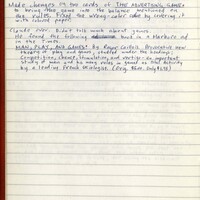 Made changes on two cards of THE ADVERTISING GAME
to bring the game into the balance mentioned on
the rules. Fixed the wrong-color color by covering it
with colored paper.
Claude over. Didnt talk much about games.
He found the following book in a Marboro ad
in the Times.
MAN, PLAY, AND GAMES by Roger Caillois. Provocative new
theory of play and games, studied under the headings:
Competition, chance, simulation, and vertigo. An important
study of man and his many roles in games as total activity
by a leading French sociologist. (Orig.